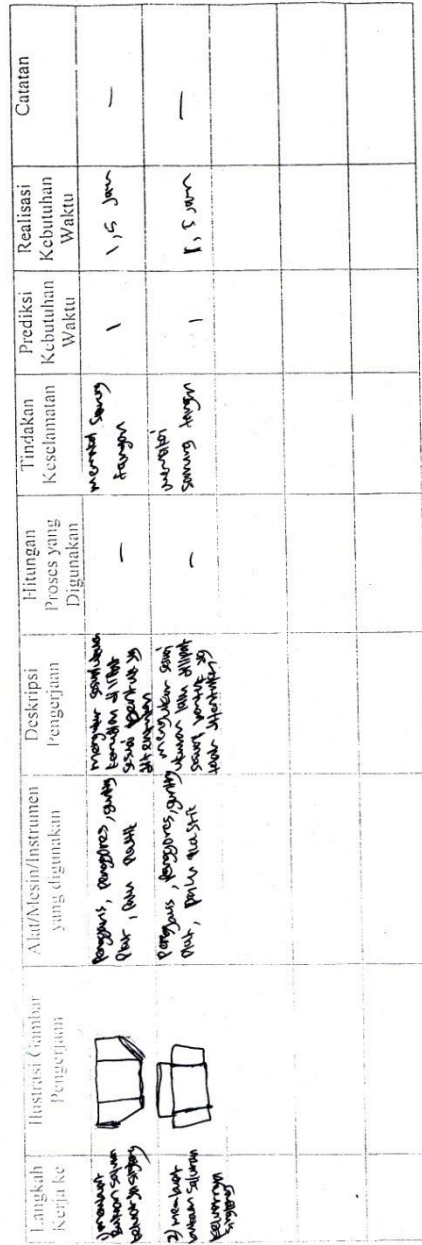 Langkah
Kerja ke
Ilustrasi Gambar
Pengerjaan
Alat/Mesin/Instrumen
yang digunakan
Deskripsi
Pengerjaan
Hitungan
Proses yang
Digunakan
Tindakan
Keselamatan
Prediksi
Kebutuhan
Waktu
Realisasi
Kebutuhan
Waktu
Catatan
1) membuat
keluarnya
Penggaris, Penggores, gunting
Plat, Palu Plastik
mengukur sesuai ukuran
kemudian di lipat
sesuai bentuk yg
ditentukan
—
memakai sarung
tangan
1
1,5 Jam
—
2) membuat
saluran
keluarnya
Penggaris, Penggores, gunting
Plat, Palu Plastik
mengukur sesuai
ukuran lalu dilipat
sesuai bentuk yg
telah ditentukan
—
memakai
sarung tangan
1
1,5 Jam
—